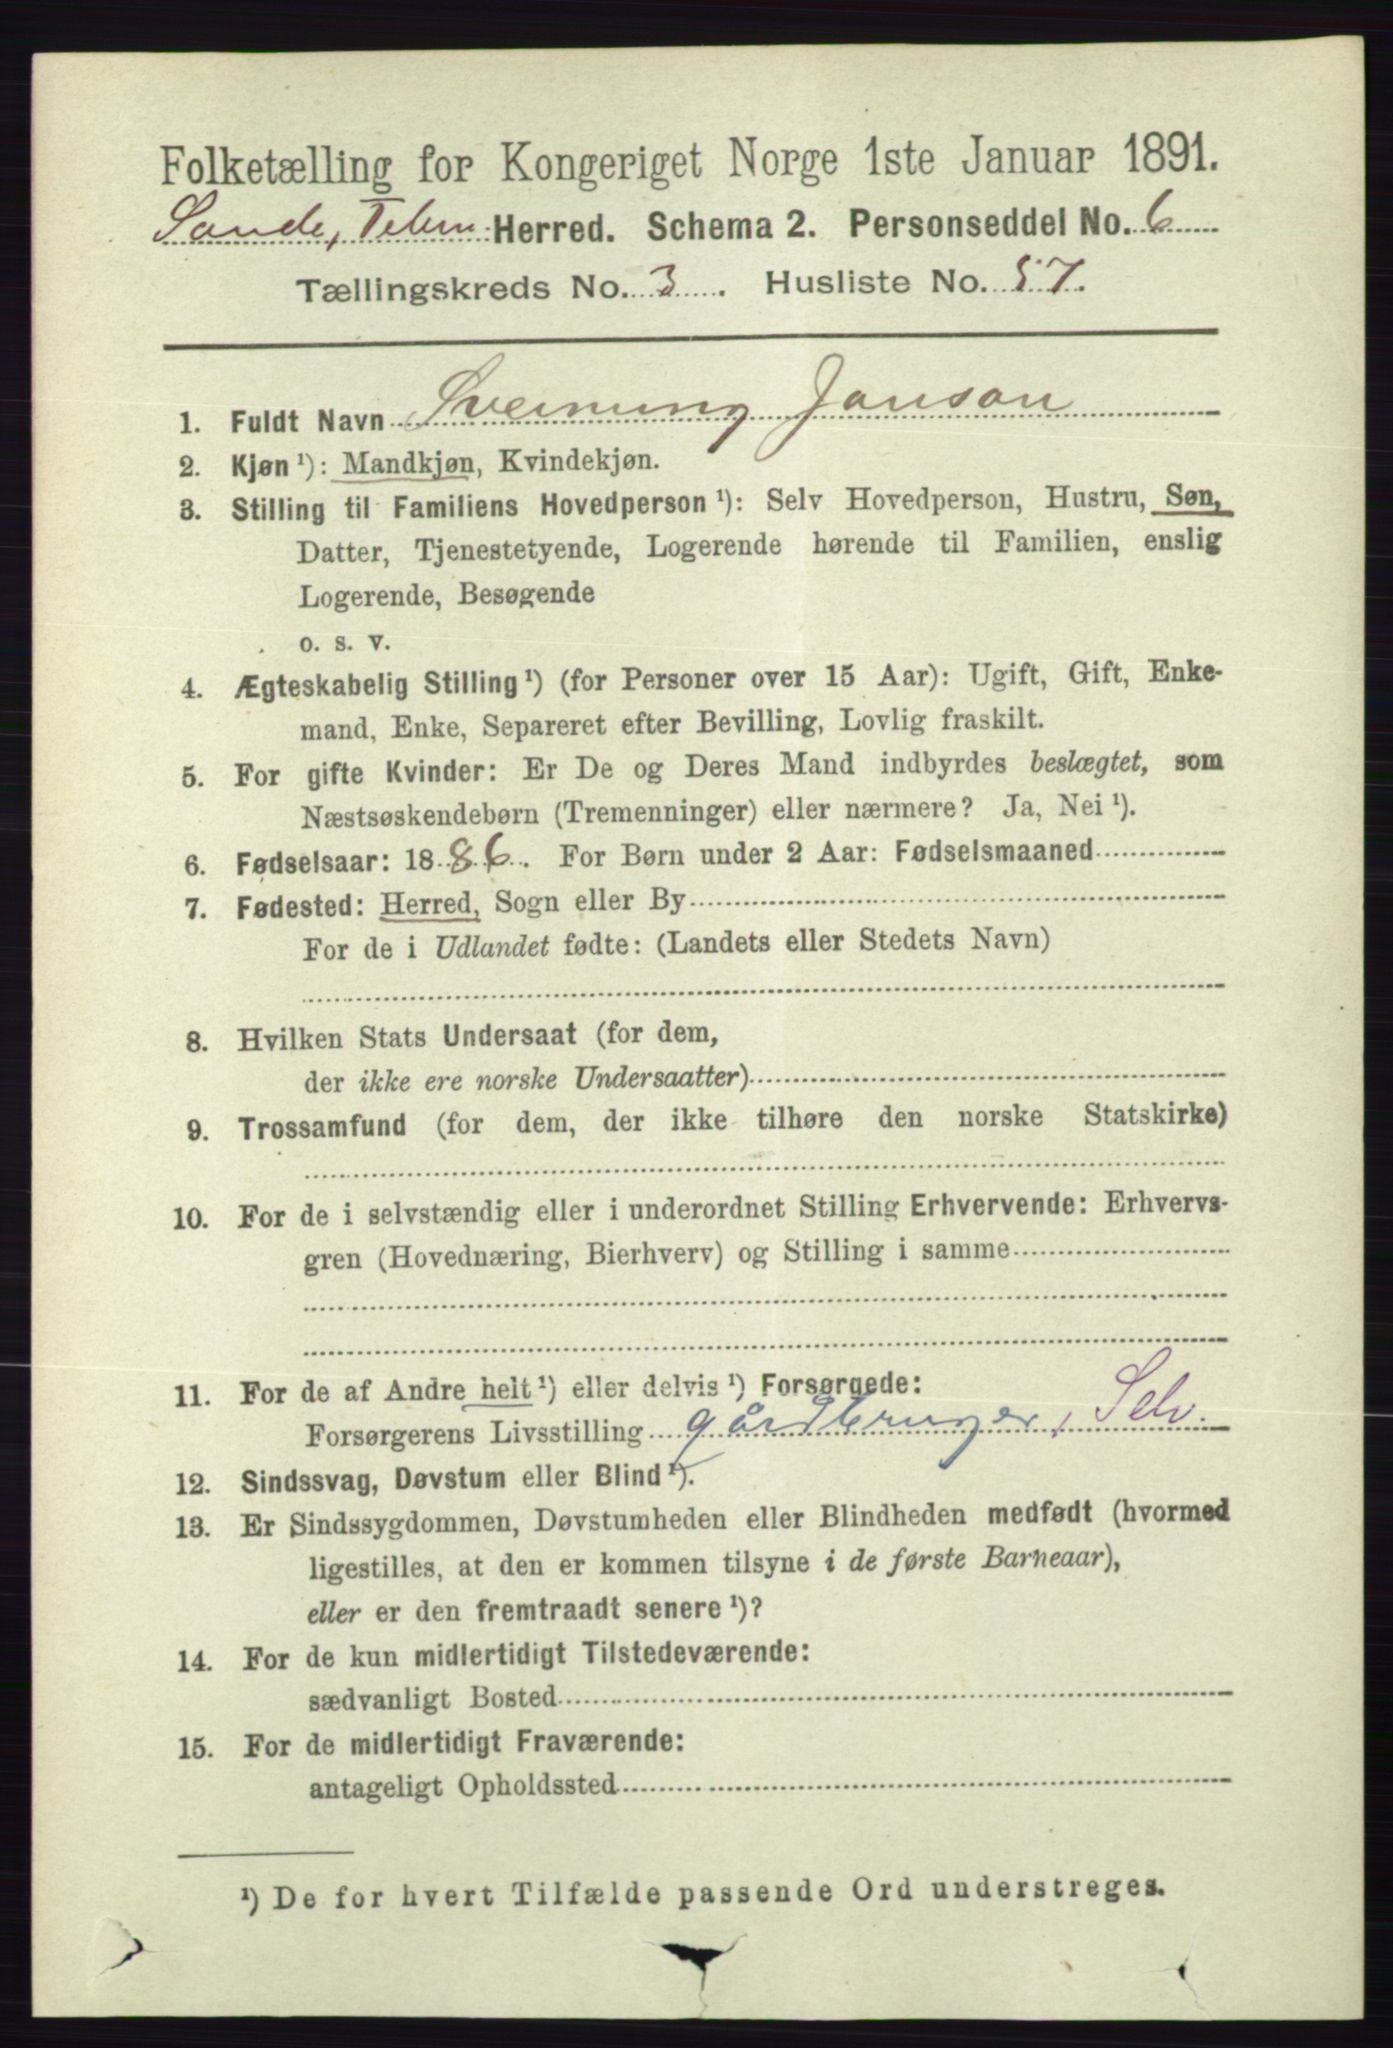 Folketælling for Kongeriget Norge 1ste Januar 1891.
Sande, Telem Herred. Schema 2. Personseddel No. 6
Tællingskreds No. 3. Husliste No. 57.
1. Fuldt Navn Sveinung Janson
2. Kjøn ¹): Mandkjøn, Kvindekjøn.
3. Stilling til Familiens Hovedperson ¹): Selv Hovedperson, Hustru, Søn,
Datter, Tjenestetyende, Logerende hørende til Familien, enslig
Logerende, Besøgende
o. s. v.
4. Ægteskabelig Stilling ¹) (for Personer over 15 Aar): Ugift, Gift, Enke-
mand, Enke, Separeret efter Bevilling, Lovlig fraskilt.
5. For gifte Kvinder: Er De og Deres Mand indbyrdes beslægtet, som
Næstsøskendebørn (Tremenninger) eller nærmere? Ja, Nei ¹).
6. Fødselsaar: 1886. For Børn under 2 Aar: Fødselsmaaned
7. Fødested: Herred, Sogn eller By
For de i Udlandet fødte: (Landets eller Stedets Navn)
8. Hvilken Stats Undersaat (for dem,
der ikke ere norske Undersaatter)
9. Trossamfund (for dem, der ikke tilhøre den norske Statskirke)
10. For de i selvstændig eller i underordnet Stilling Erhvervende: Erhvervs-
gren (Hovednæring, Bierhverv) og Stilling i samme
11. For de af Andre helt ¹) eller delvis ¹) Forsørgede:
Forsørgerens Livsstilling gårdbruger, Selv.
12. Sindssvag, Døvstum eller Blind ¹).
13. Er Sindssygdommen, Døvstumheden eller Blindheden medfødt (hvormed
ligestilles, at den er kommen tilsyne i de første Barneaar),
eller er den fremtraadt senere ¹)?
14. For de kun midlertidigt Tilstedeværende:
sædvanligt Bosted
15. For de midlertidigt Fraværende:
antageligt Opholdssted
¹) De for hvert Tilfælde passende Ord understreges.